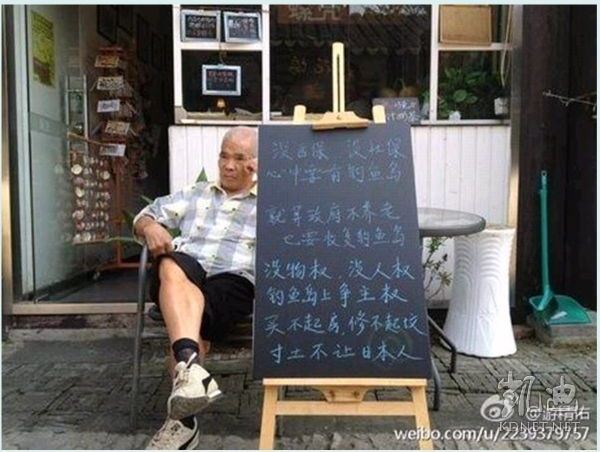 没医保 没社保
心中要有钓鱼岛
就算政府不养老
也要收复钓鱼岛
没物权、没人权
钓鱼岛上争主权
买不起房、修不起坟
寸土不让日本人
凯迪
KDNET.NET
@游精佑
weibo.com/u/2239379757